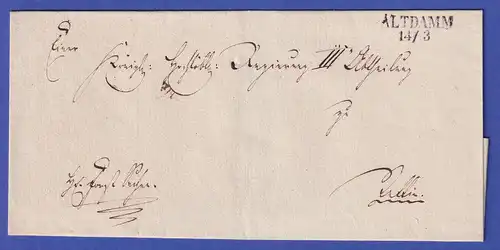 ALTDAMM
14/3
Einer
Königl: Hochlöbl: Regierung III Abtheilung
zu
Stettin.